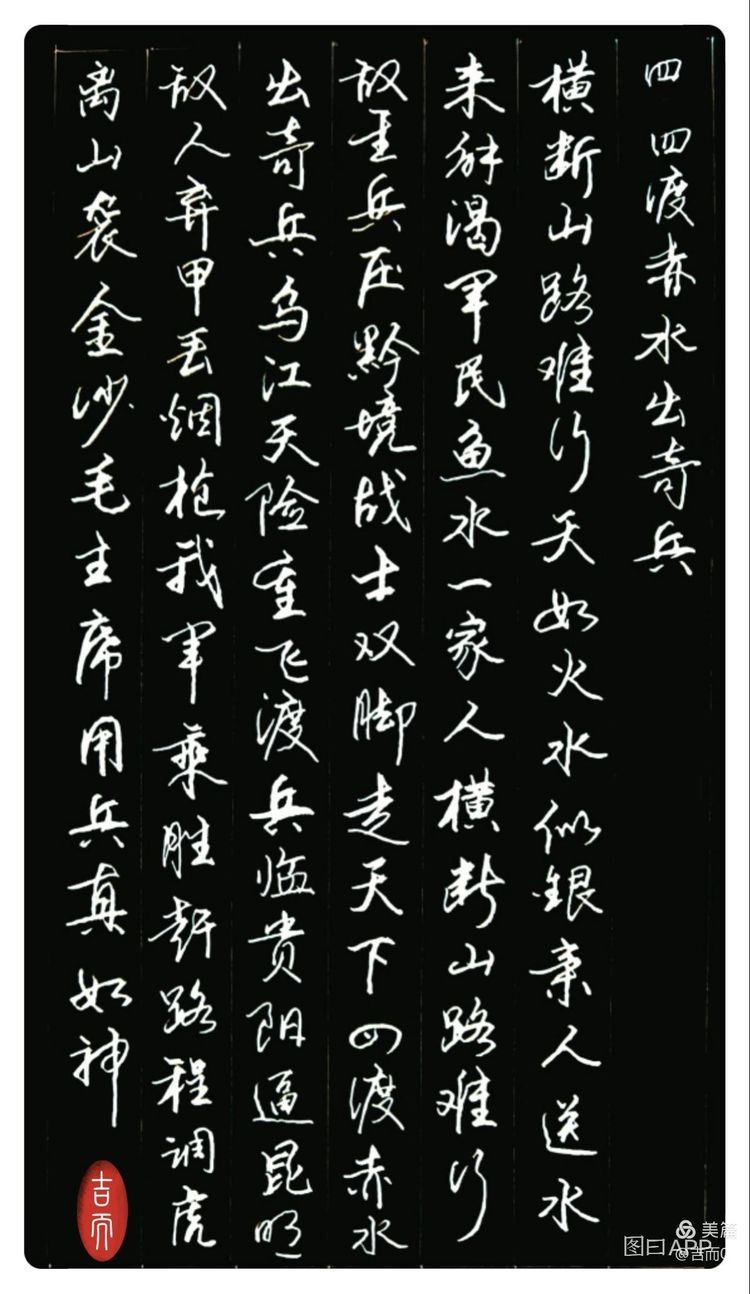 四 四渡赤水出奇兵
横断山路难行天如火水似银亲人送水
来解渴军民鱼水一家人横断山路难行
敌重兵压黔境战士双脚走天下四渡赤水
出奇兵乌江天险重飞渡兵临贵阳逼昆明
敌人弃甲丢烟枪我军乘胜赶路程调虎
离山袭金沙毛主席用兵真如神
吉而
美篇
图曰APP